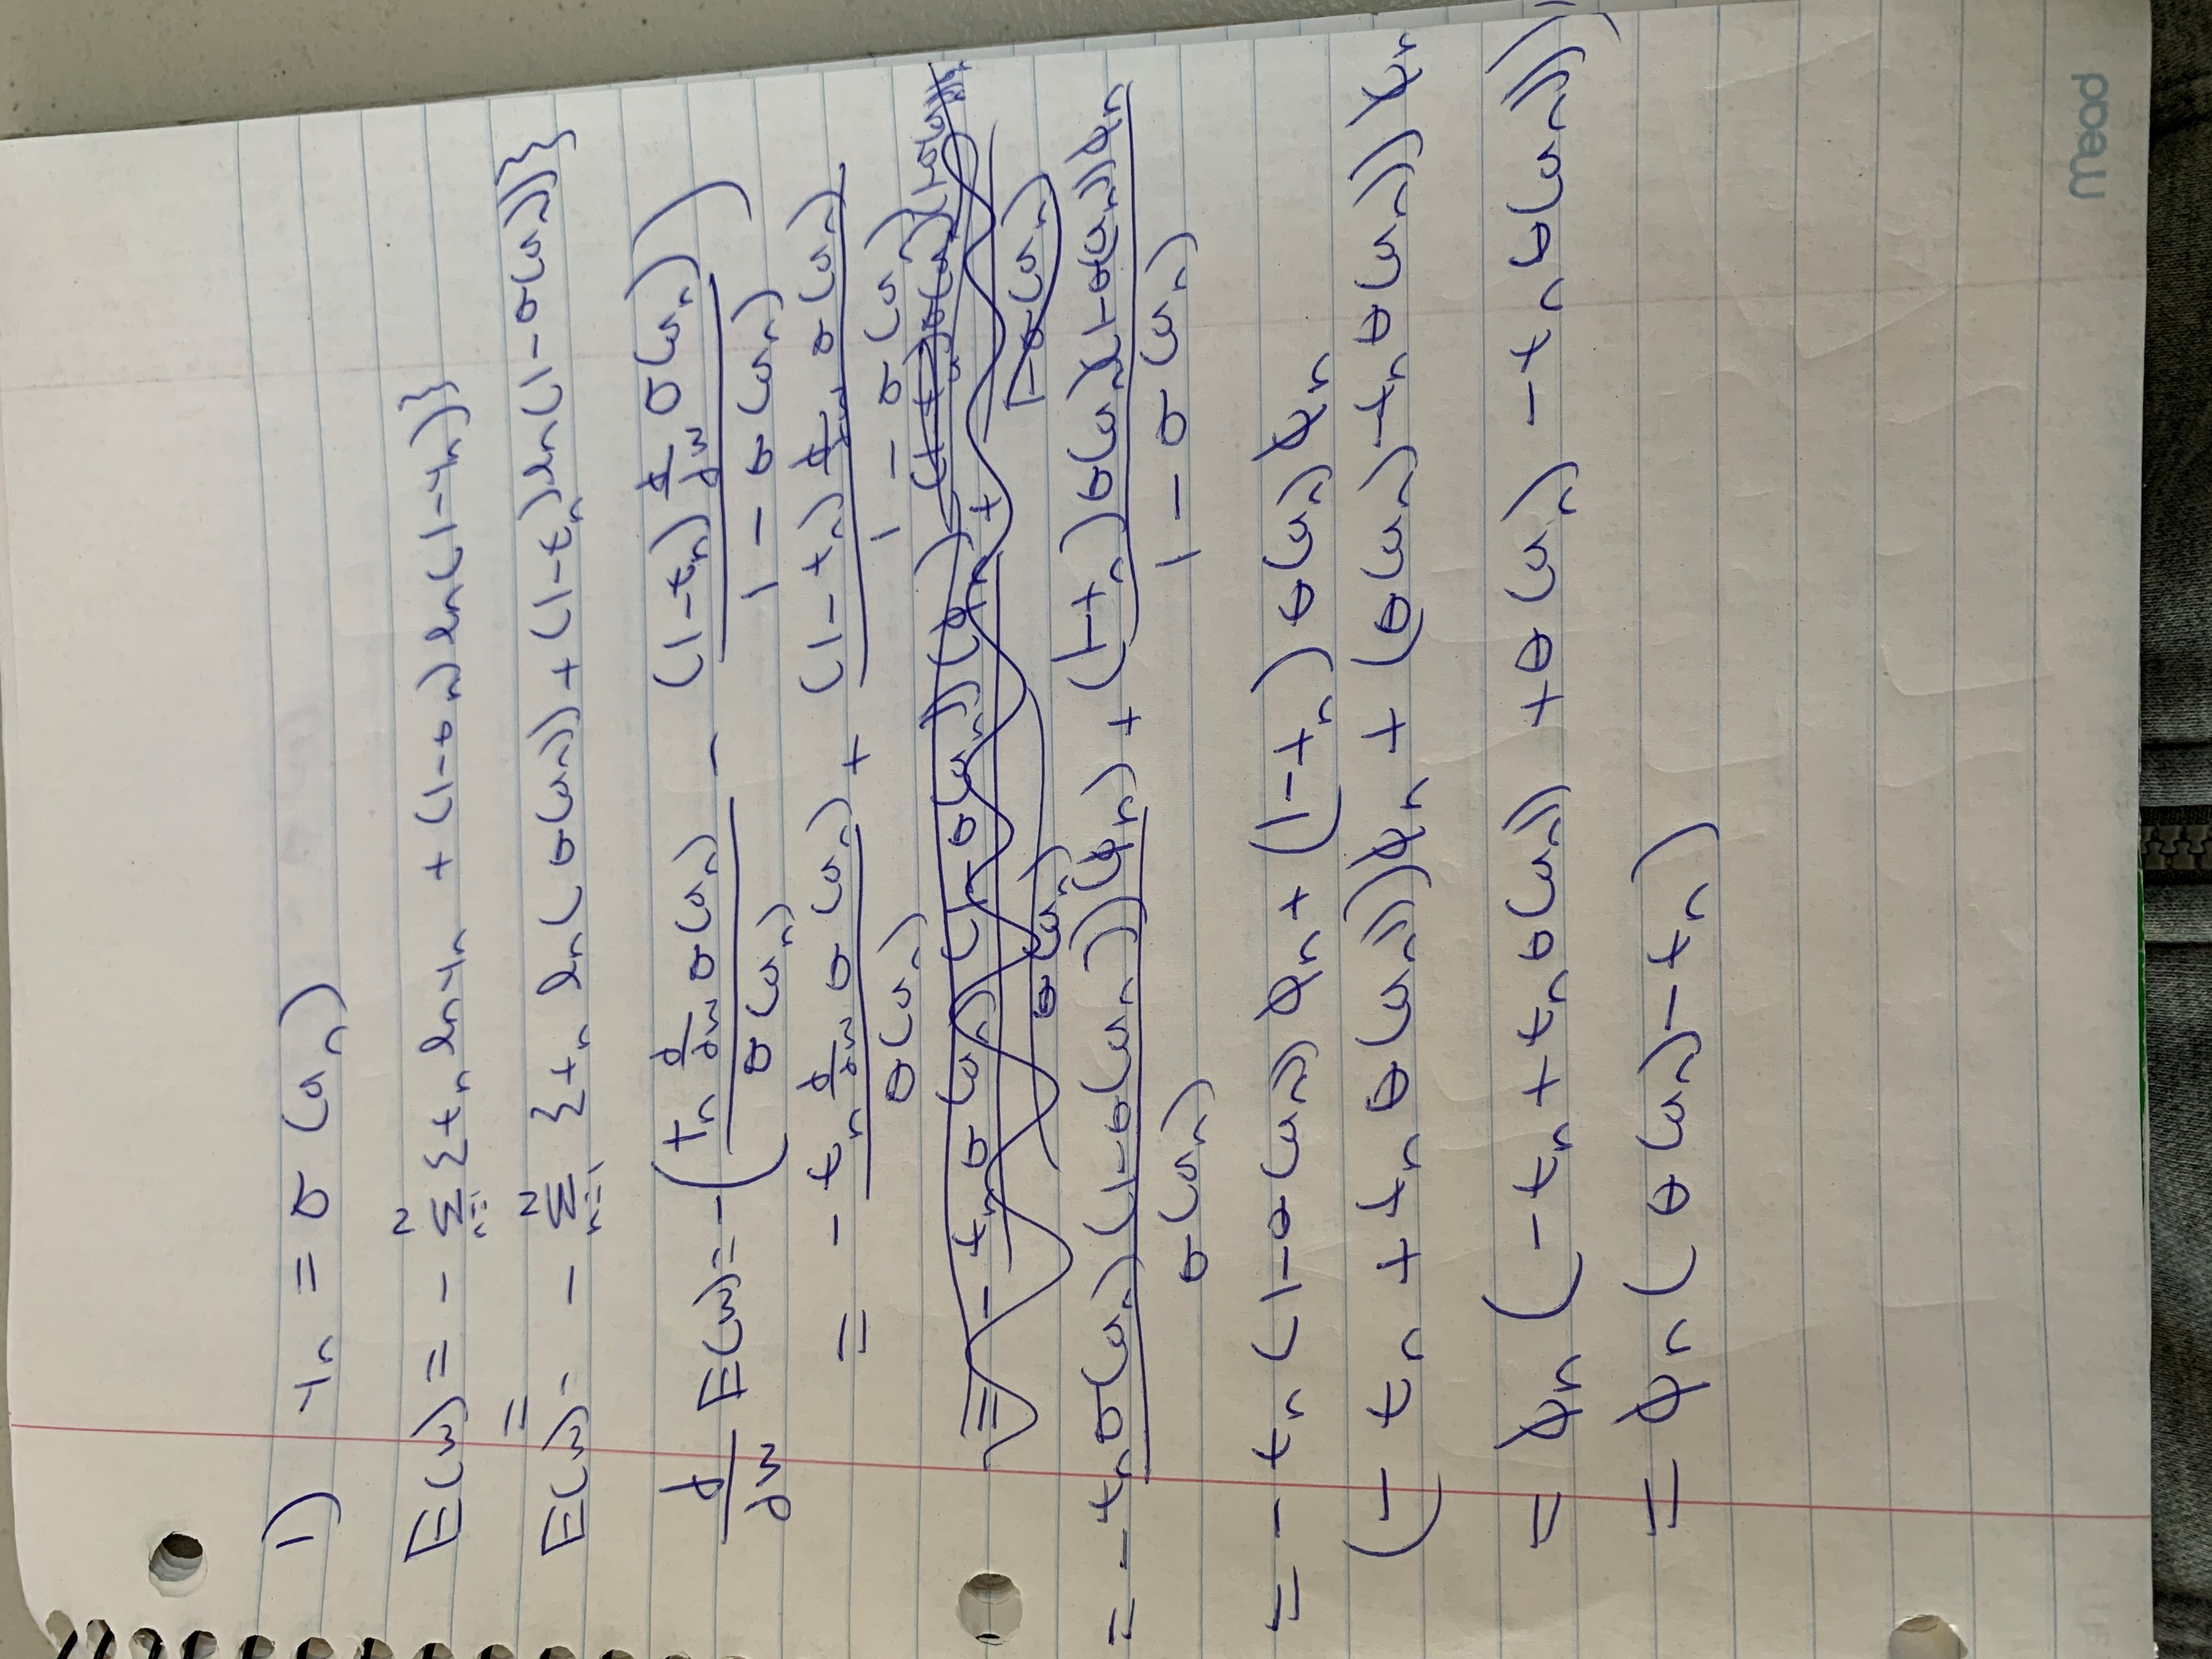 1) yₙ = σ(aₙ)
E(w) = - Σₙ₌₁ᴺ {tₙ ln yₙ + (1-tₙ) ln(1-yₙ)}
E(w) = - Σₙ₌₁ᴺ {tₙ ln(σ(aₙ)) + (1-tₙ) ln(1-σ(aₙ))}
d/dw E(w) = - ( tₙ d/dw σ(aₙ) / σ(aₙ) - (1-tₙ) d/dw σ(aₙ) / 1-σ(aₙ) )
= - tₙ d/dw σ(aₙ) / σ(aₙ) + (1-tₙ) d/dw σ(aₙ) / 1-σ(aₙ)
= - tₙ σ(aₙ)(1-σ(aₙ))(φₙ) / σ(aₙ) + (1-tₙ)σ(aₙ)(1-σ(aₙ))φₙ / 1-σ(aₙ)
= - tₙ (1-σ(aₙ)) φₙ + (1-tₙ) σ(aₙ) φₙ
(- tₙ + tₙ σ(aₙ)) φₙ + (σ(aₙ) - tₙ σ(aₙ)) φₙ
= φₙ (- tₙ + tₙ σ(aₙ) + σ(aₙ) - tₙ σ(aₙ))
= φₙ (σ(aₙ) - tₙ)
mead